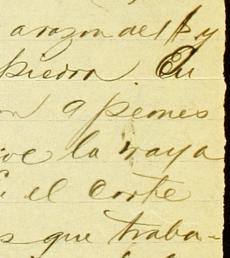 a razon del P. y
piedra. En
on 9 peones
ive la raya
el corte
s que traba-